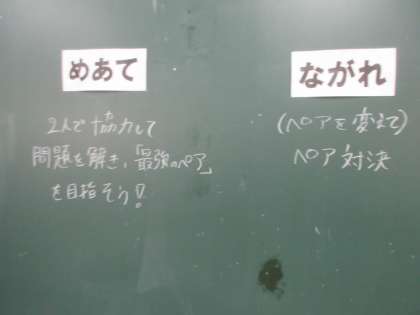 めあて
2人で協力して
問題を解き、「最強のペア」
を目指そう!
ながれ
(ペアを変えて)
ペア対決